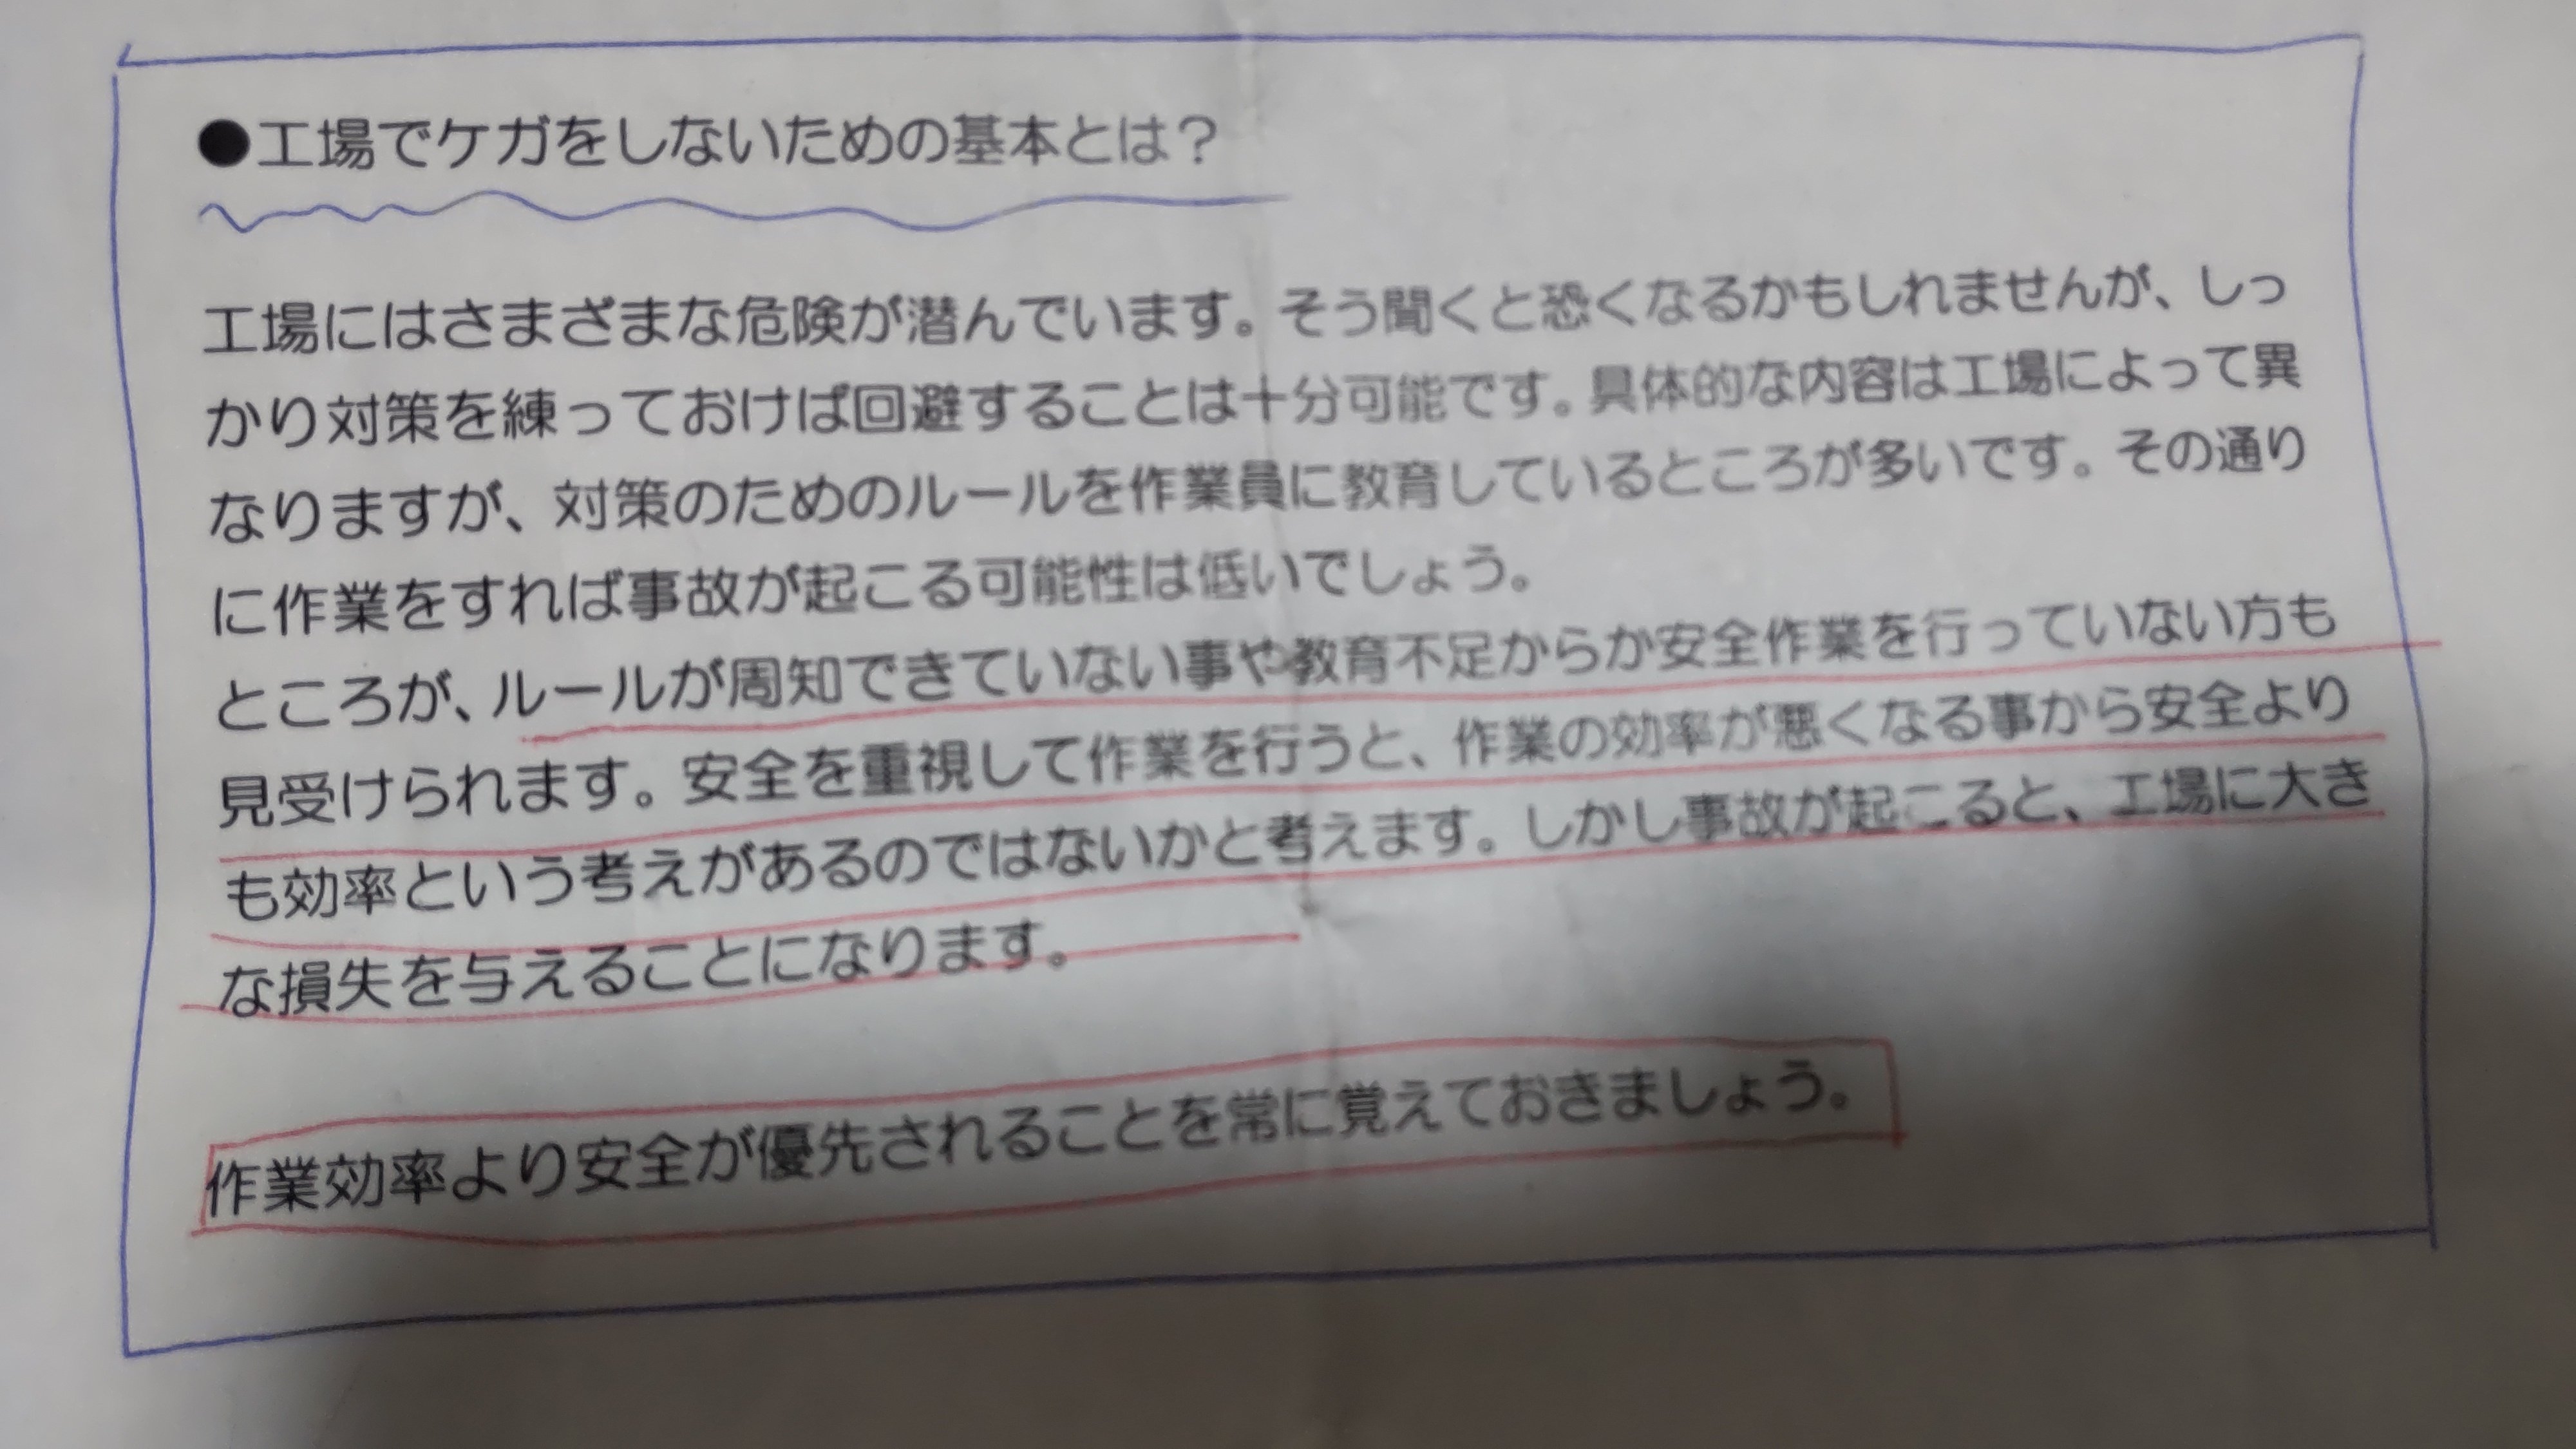 ●工場でケガをしないための基本とは？
工場にはさまざまな危険が潜んでいます。そう聞くと恐くなるかもしれませんが、しっ
かり対策を練っておけば回避することは十分可能です。具体的な内容は工場によって異
なりますが、対策のためのルールを作業員に教育しているところが多いです。その通り
に作業をすれば事故が起こる可能性は低いでしょう。
ところが、ルールが周知できていない事や教育不足からか安全作業を行っていない方も
見受けられます。安全を重視して作業を行うと、作業の効率が悪くなる事から安全より
も効率という考えがあるのではないかと考えます。しかし事故が起こると、工場に大き
な損失を与えることになります。
作業効率より安全が優先されることを常に覚えておきましょう。